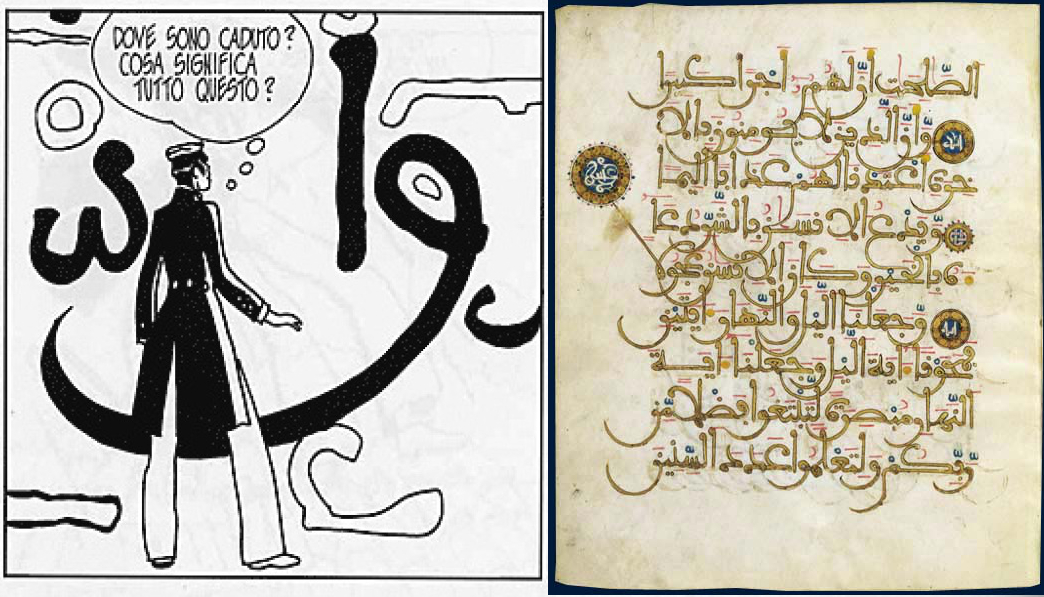 DOVE SONO CADUTO?
COSA SIGNIFICA
TUTTO QUESTO?
الصّلحت انّ لهم اجرا كبيرا
وّانّ الذين لا يومنون بالا
خرة اعتدنا لهم عذابا اليما
ويدع الانسن بالشّرّ دعا
ه بالخير وكان الانسن عجولا
وجعلنا اليل والنّهار ايتين
فمحونا اية اليل وجعلنا اية
النّهار مبصرة لّتبتغوا فضلا مّن
رّبّكم ولتعلموا عدد السّنين